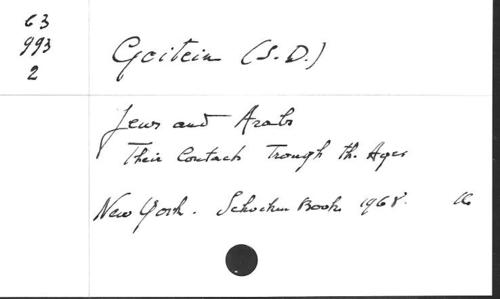 63
993
2
Goitein (S.D.)
Jews and Arabs
Their Contacts Trough th. Ages
New York. Schocken Books 1968.